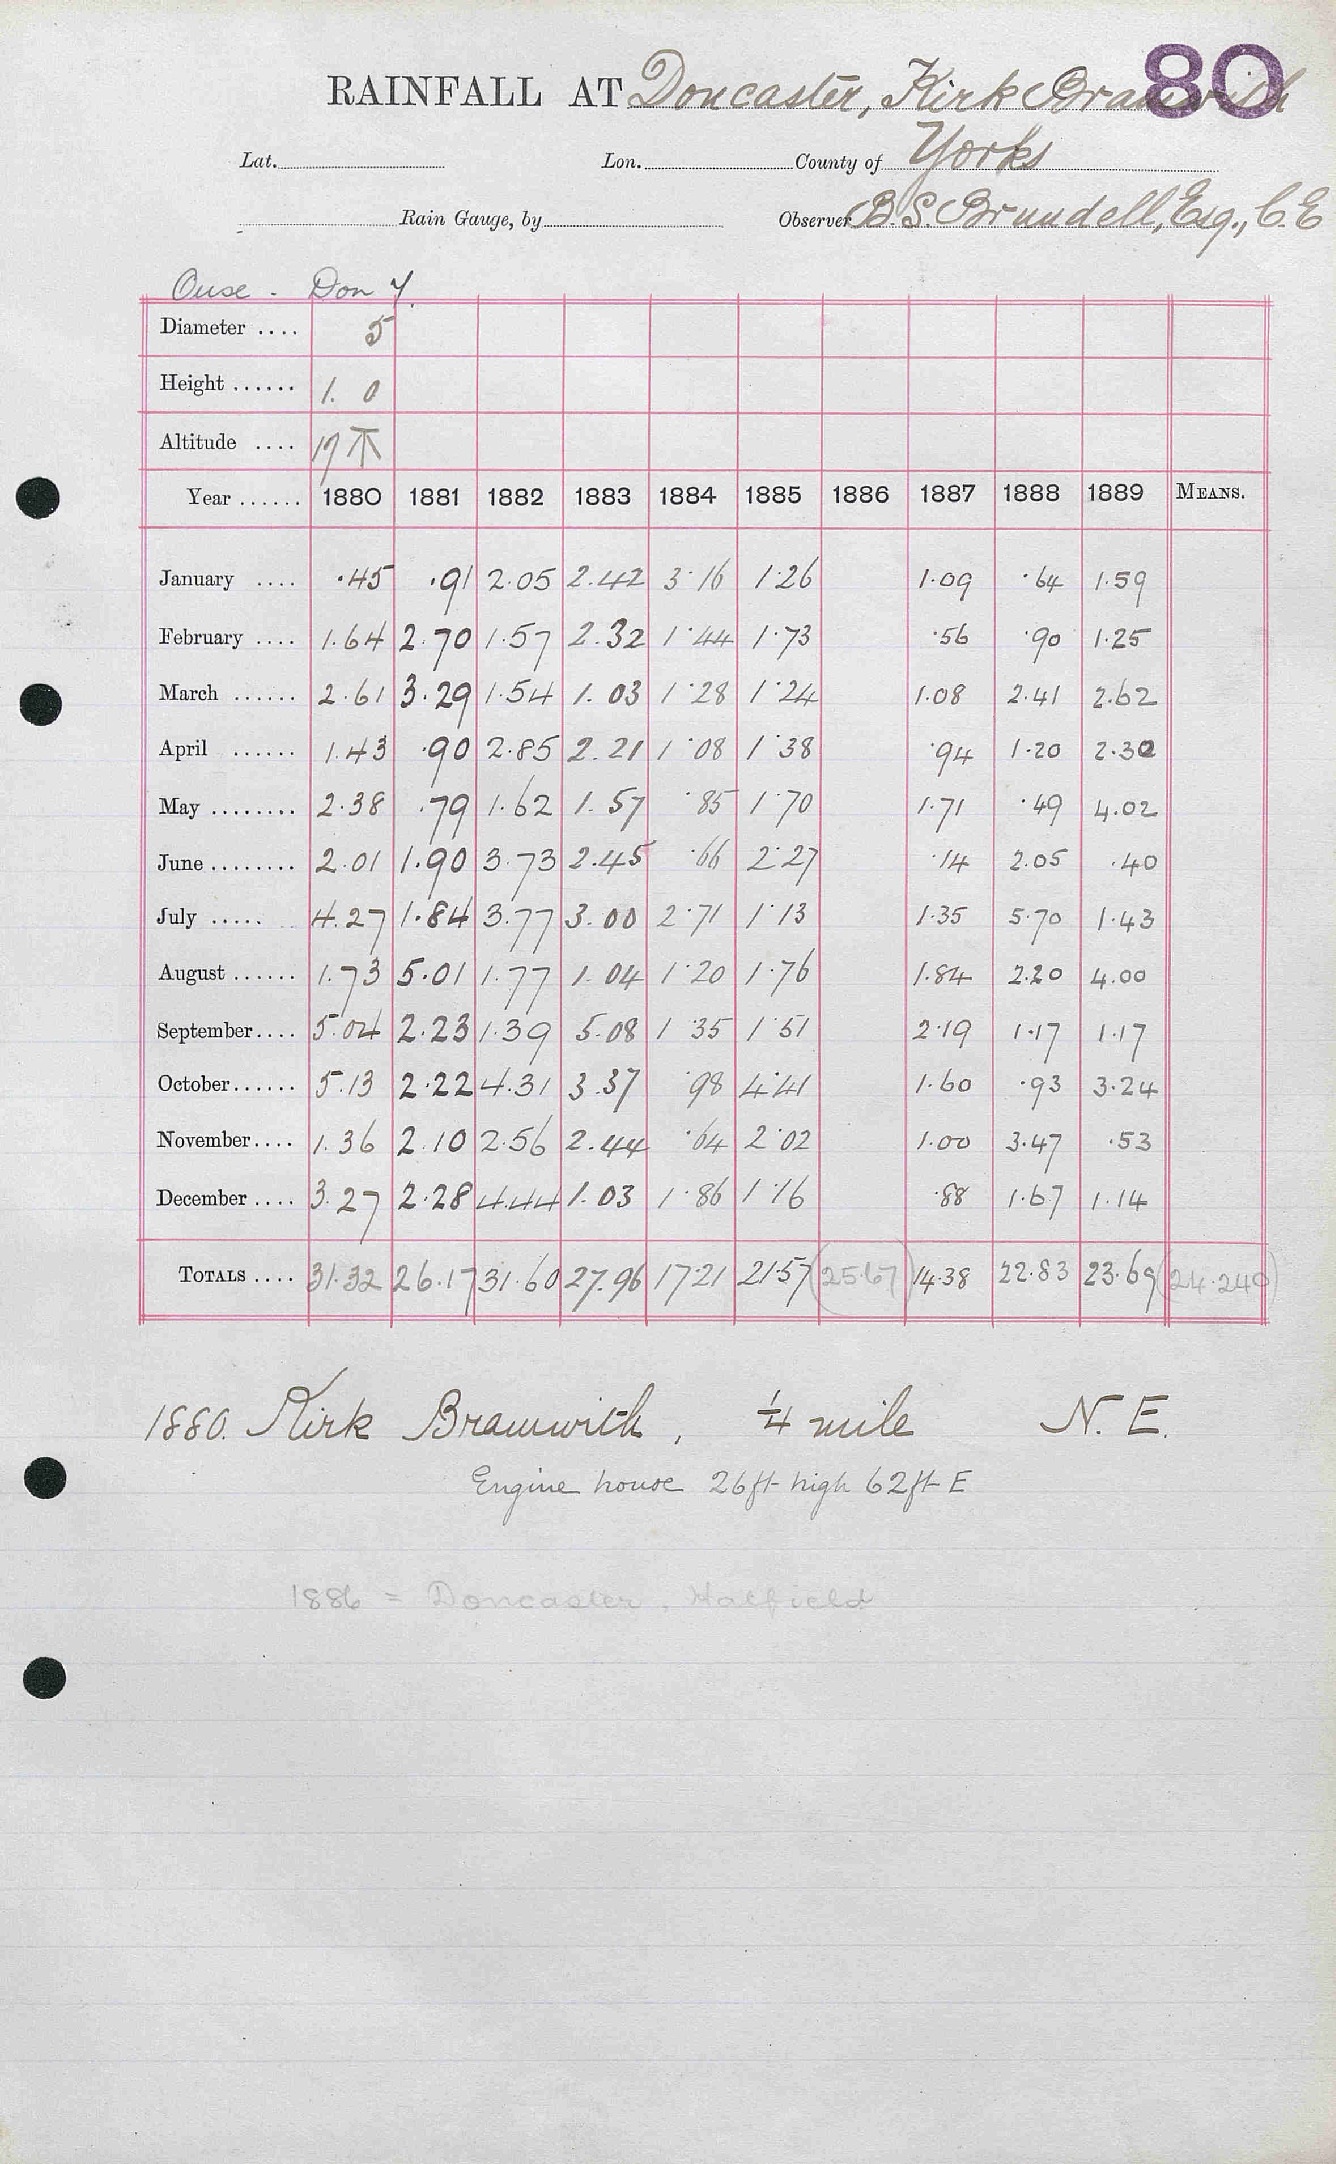 80
RAINFALL AT Doncaster, Kirk Bramwith
Lat. Lon. County of Yorks
Rain Gauge, by Observer B.S. Brundell, Esq., C.E
Ouse - Don Y.
Diameter .... 5
Height ...... 1. 0
Altitude .... 17
Year ...... 1880 1881 1882 1883 1884 1885 1886 1887 1888 1889 MEANS.
January .... ·45 ·91 2·05 2·42 3·16 1·26 1·09 ·64 1·59
February .... 1·64 2·70 1·57 2·32 1·44 1·73 ·56 ·90 1·25
March ...... 2·61 3·29 1·54 1·03 1·28 1·24 1·08 2·41 2·62
April ...... 1·43 ·90 2·85 2·21 1·08 1·38 ·94 1·20 2·30
May ........ 2·38 ·79 1·62 1·57 ·85 1·70 1·71 ·49 4·02
June ........ 2·01 1·90 3·73 2·45 ·66 2·27 ·14 2·05 ·40
July ..... 4·27 1·84 3·77 3·00 2·71 1·13 1·35 5·70 1·43
August ...... 1·73 5·01 1·77 1·04 1·20 1·76 1·84 2·20 4·00
September.... 5·04 2·23 1·39 5·08 1·35 1·51 2·19 1·17 1·17
October...... 5·13 2·22 4·31 3·37 ·98 4·41 1·60 ·93 3·24
November.... 1·36 2·10 2·56 2·44 ·64 2·02 1·00 3·47 ·53
December .... 3·27 2·28 4·44 1·03 1·86 1·16 ·88 1·67 1·14
TOTALS .... 31·32 26·17 31·60 27·96 17·21 21·57 (25·67) 14·38 22·83 23·69 (24·240)
1880. Kirk Bramwith, ¼ mile N. E.
Engine house 26ft high 62ft E
1886 = Doncaster, Hatfield